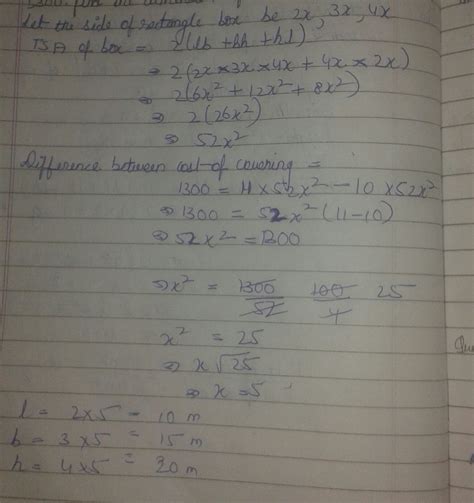 let the side of rectangle box be 2x, 3x, 4x
TSA of box = 2(lb + bh + hl)
⇒ 2(2x × 3x × 4x + 4x × 2x)
⇒ 2(6x² + 12x² + 8x²)
⇒ 2(26x²)
⇒ 52x²
Difference between cost of covering =
1300 = 11 × 52x² − 10 × 52x²
⇒ 1300 = 52x² (11−10)
⇒ 52x² = 1300
⇒ x² = 1300/52 100/4 25
x² = 25
⇒ x √25
⇒ x = 5
l = 2×5 = 10 m
b = 3×5 = 15 m
h = 4×5 = 20 m